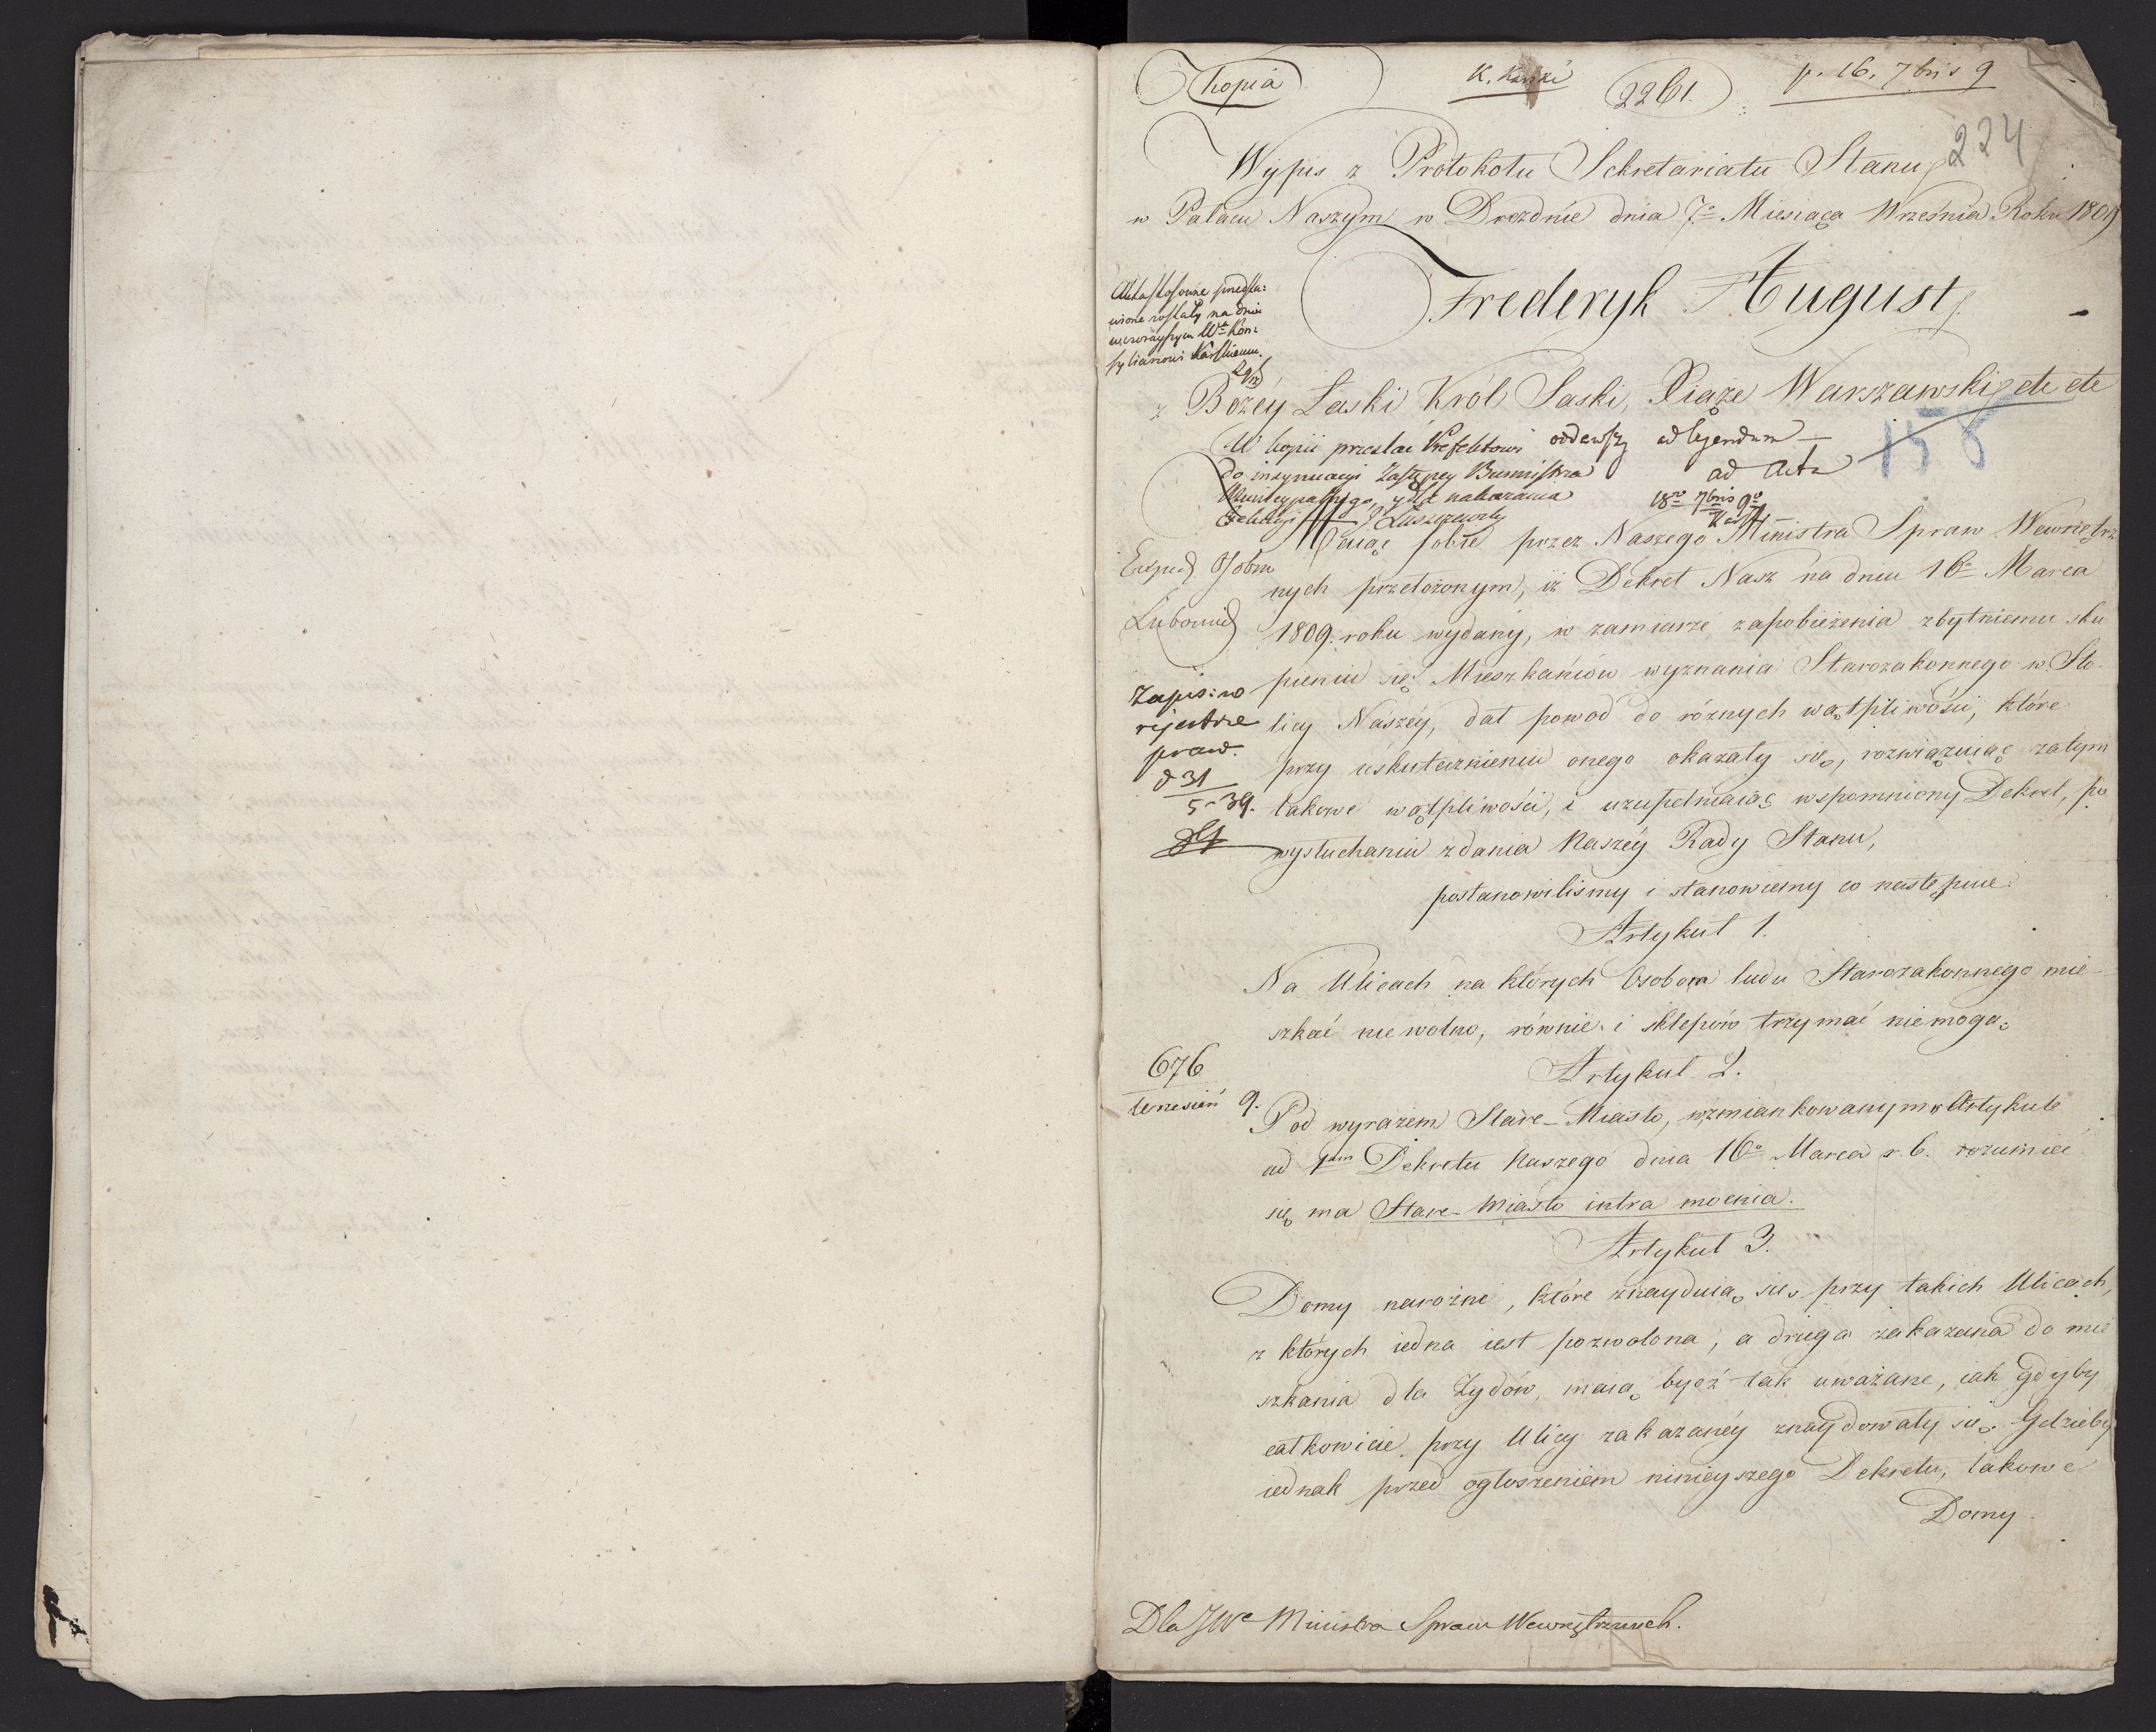 Kopia
K. Karski
2261.
p. 16. 7bris 9
224
Wypis z Protokołu Sekretariatu Stanu
w Pałacu Naszym w Dreźnie dnia 7o Miesiąca Września Roku 1809
Frederyk August
z Bożéy Łaski Król Saski, Xiąże Warszawski etc etc
Akta stosowne przedsta:
wione zostały na dniu
wczorayszym Wu Kon:
syliarowi Karskiemu.
158
W kopii przesłać Prefektowi
do insynuacyi Zastępcy Burmistrza
Municypalnego, y dla nakazania
Łuszczewsky
oddawszy ad legendum
ad Acta
18o 7bris 9o
Exped Osobm
Lubowid
Maiąc sobie przez Naszego Ministra Spraw Wewnętrz
nych przełożonym, iż Dekret Nasz na dniu 16o Marca
1809. roku wydany, w zamiarze zapobieżenia zbytniemu sku
pieniu się Mieszkańców wyznania Starozakonnego w Sto-
licy Naszéy, dał powod do różnych wątpliwości, które
przy uskutecznieniu onego okazały się, rozwiązuiąc zatym
takowe wątpliwości, i uzupełniaiąc wspomniony Dekret, po
wysłuchaniu zdania Naszéy Rady Stanu,
postanowilismy i stanowiemy co następuie:
Zapis: w
rejestrze
praw.
d 31
5-39.
Artykuł 1.
Na Ulicach na których Osobom ludu Starozakonnego mie-
szkać nie wolno, równie i sklepów trzymać niemogą.
Artykuł 2.
676
wrzesień 9.
Pod wyrazem Stare-Miasto, wzmiankowanym w Artykule
ad 1um Dekretu Naszego dnia 16o Marca r. b. rozumieć
się ma Stare-Miasto intra moenia.
Artykuł 3.
Domy narożne, które znayduią się przy takich Ulicach,
z których iedna iest pozwolona, a druga zakazana do mie
szkania dla Żydów, maią bydź tak uważane, iak gdyby
całkowicie przy Ulicy zakazanéy znaydowały się. Gdzieby
iednak przed ogłoszeniem ninieyszego Dekretu, takowe
Domy
Dla JWo Ministra Spraw Wewnętrznych.